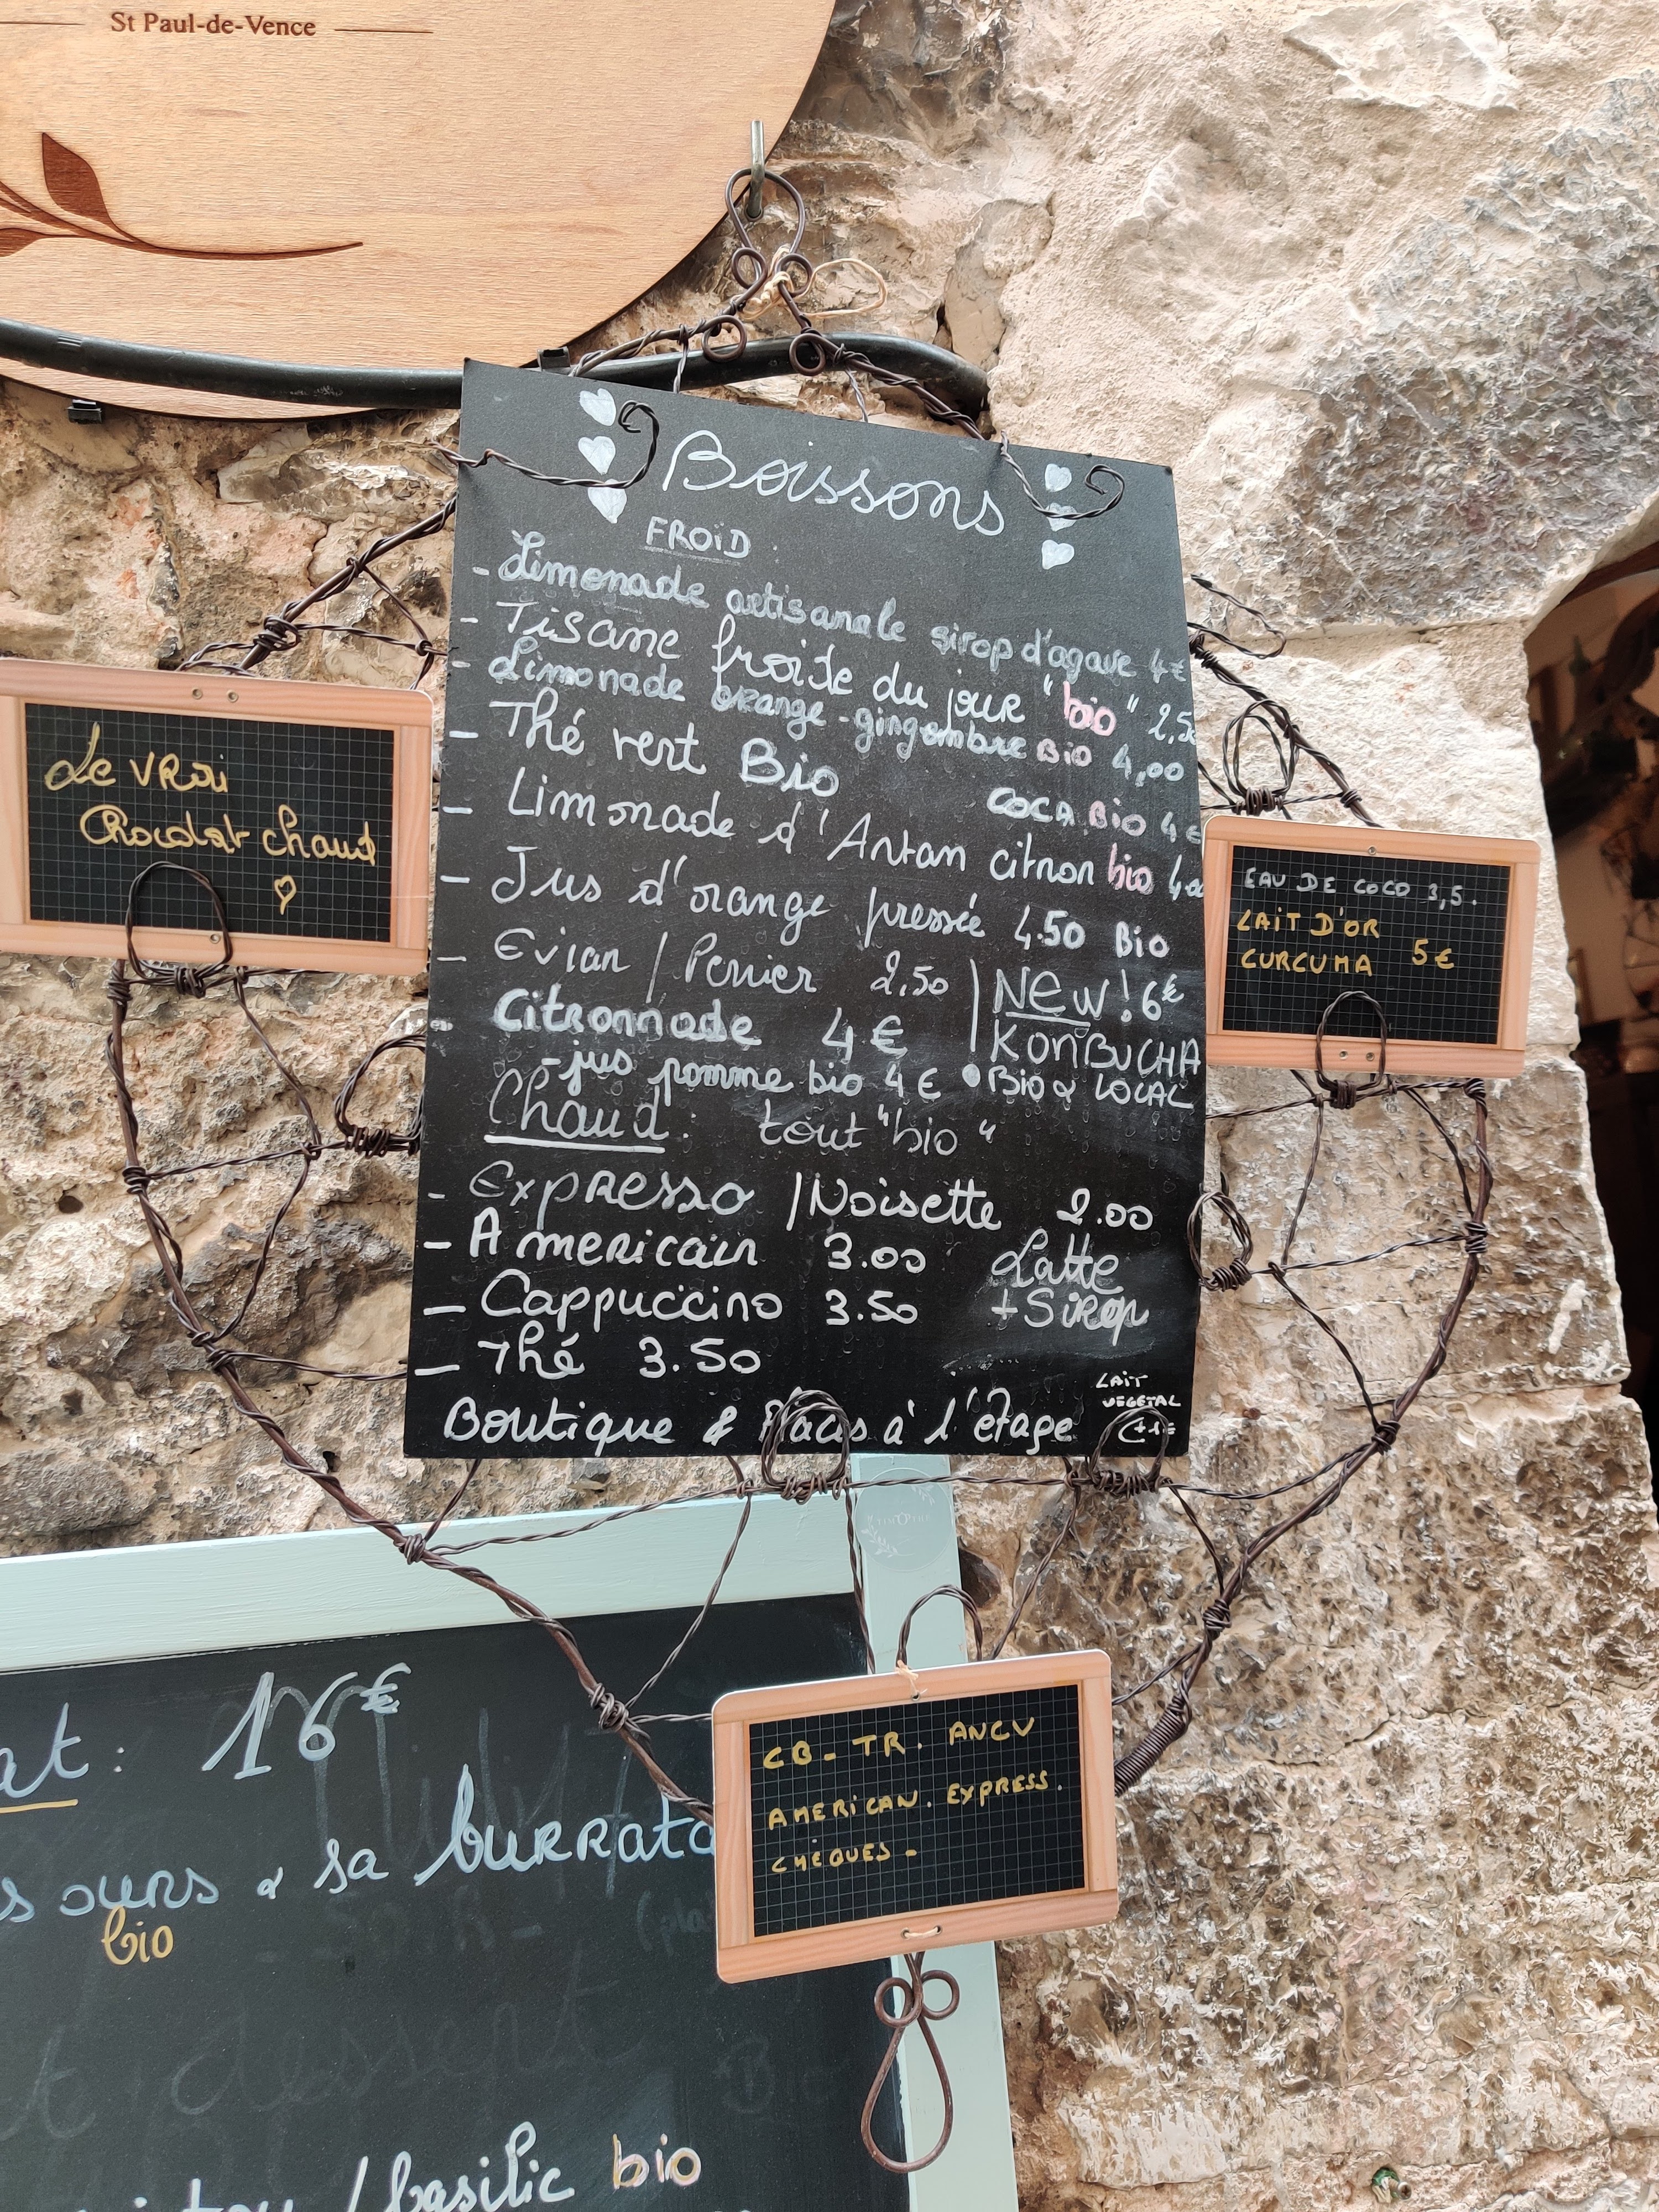 St Paul-de-Vence
Boissons
FROiD
- Limonade artisanale sirop d'agave 4€
- Tisane froide du jour "bio" 2,5
- Limonade orange-gingembre Bio 4,00
- Thé vert Bio
COCA Bio 4€
- Limonade d'Antan citron bio 4
- Jus d'orange pressée 4.50 Bio
- Evian / Perrier 2,50
- Citronnade 4€
- jus pomme bio 4€
NEW! 6€
KONBUCHA
BiO & LOCAL
Chaud: tout "bio"
- Expresso / Noisette 2.00
- Americain 3.00
- Cappuccino 3.50
Latte
+ SiRop
- Thé 3.50
LAiT
VEGETAL
Boutique & Places à l'étage
Le VRai
Chocolat chaud
EAU DE COCO 3,5.
LAiT D'OR
CURCUMA 5€
CB - TR. ANCV
AMERiCAN. EXPRESS.
CHÈQUES -
at: 16€
s ours & sa burrata
bio
dessert
/ basilic bio